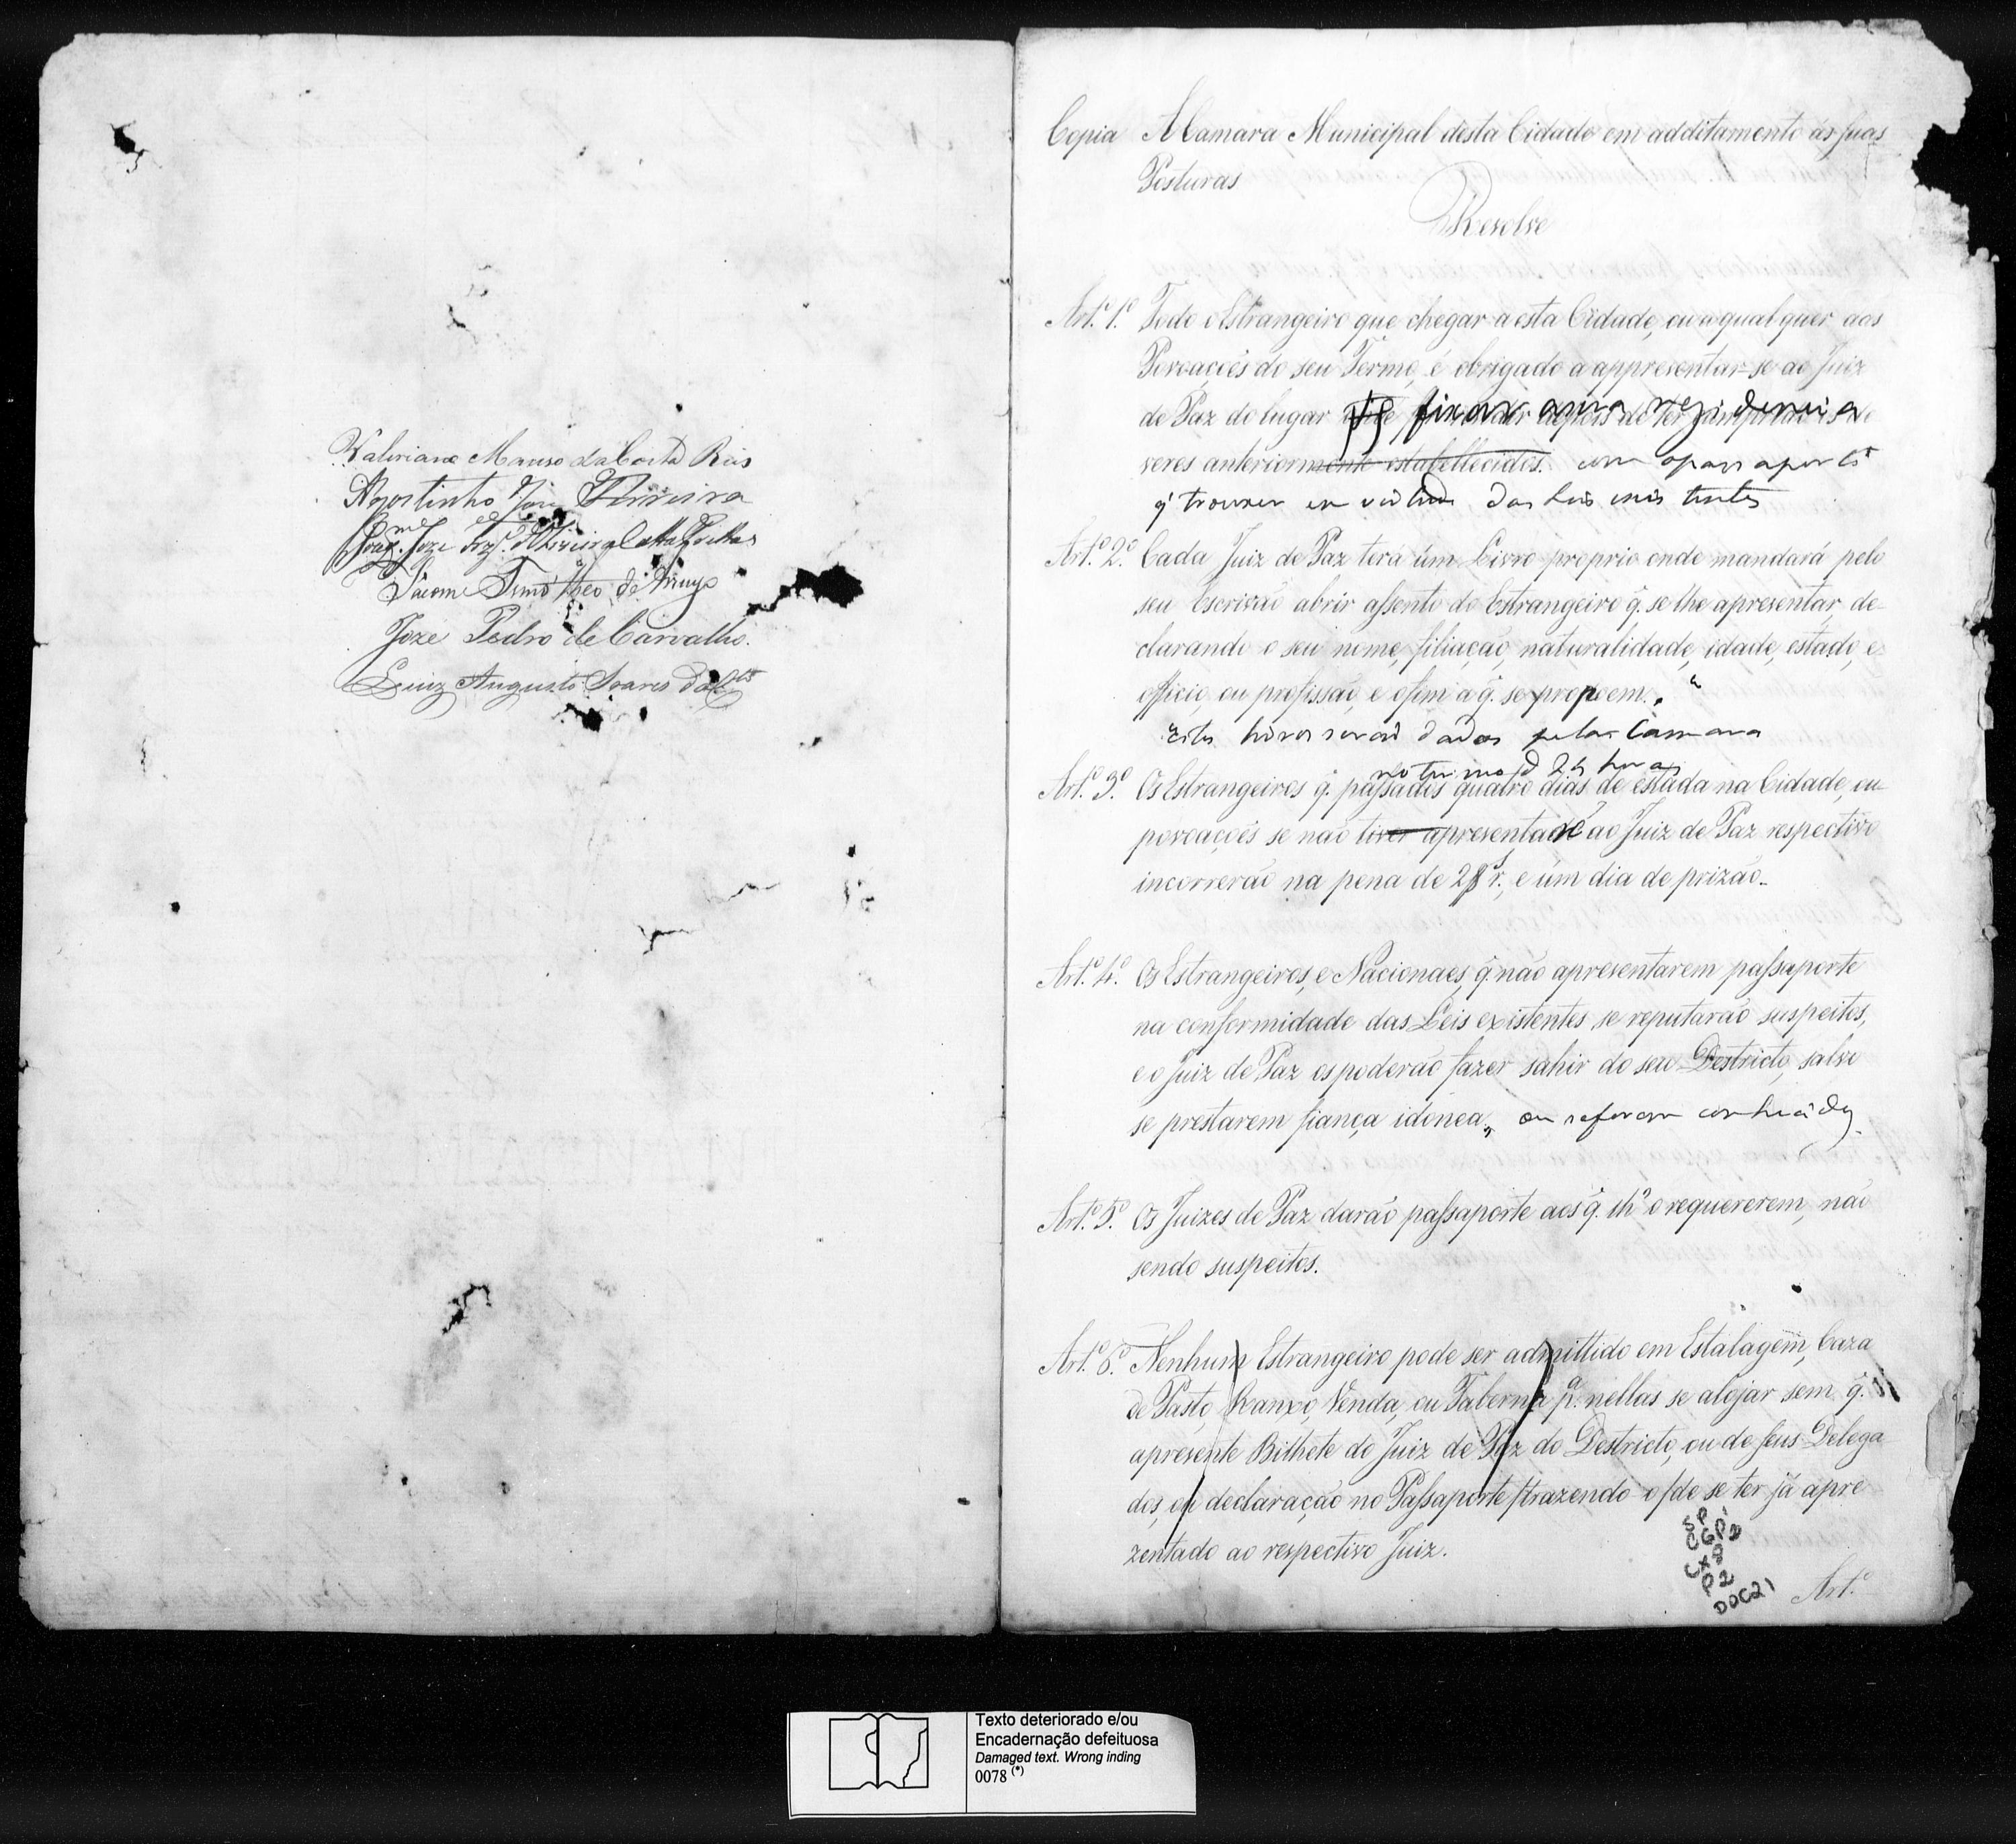 Valeriano Manso da Costa Reis
Agostinho José Ferreira
Joze
Timotheo de Araujo
Joze Pedro de Carvalho.
Luiz Augusto Soares
Copia A Camara Municipal desta Cidade em additamento ás suas
Posturas
Resolve
Art.º 1.º Todo o Estrangeiro que chegar a esta Cidade, ou a qual quer das
Povoações do seu Termo, é obrigado a appresentar-se ao Juiz
de Paz do lugar fixar a sua rezidencia
veres anteriormente estabellecidos. com o passaporte
q̃ trouxer em virtude das Leis existentes
Art.º 2.º Cada Juiz de Paz terá úm Livro proprio onde mandará pelo
seu Escrivão abrir assento do Estrangeiro q̃. se lhe apresentar, de-
clarando o seu nome, filiação, naturalidade, idade, estado, e
officio, ou profissão, e o fim a q̃. se propoem.
Estes livros serão dados pelas Camara
no termo de 24 horas
Art.º 3.º Os Estrangeiros q̃. passados quatro dias de estada na Cidade, ou
povoações se não tiver apresentado ao Juiz de Paz respectivo
incorrerão na pena de 2$ r.s, e úm dia de prizão.
Art.º 4.º Os Estrangeiros, e Nacionaes, q̃. não apresentarem passaporte
na conformidade das Leis existentes, se reputarão suspeitos,
e o Juiz de Paz os poderão fazer sahir do seu Destricto, salvo
se prestarem fiança idónea, ou se forem conhecidos
Art.º 5.º Os Juizes de Paz darão passaporte aos q̃. lh'o requererem, não
sendo suspeitos.
Art.º 6.º Nenhum Estrangeiro pode ser admittido em Estalagem, Caza
de Pasto, Ranxo, Venda, ou Taberna p.ª nellas se alojar sem q̃.
apresente Bilhete do Juiz de Paz do Destricto, ou de seus Delega
dos, ou declaração no Passaporte /trazendo-o/ de se ter já apre
zentado ao respectivo Juiz.
SP
CGP1
CX2
P2
DOC21
Art.º
Texto deteriorado e/ou
Encadernação defeituosa
Damaged text. Wrong inding
0078 (*)